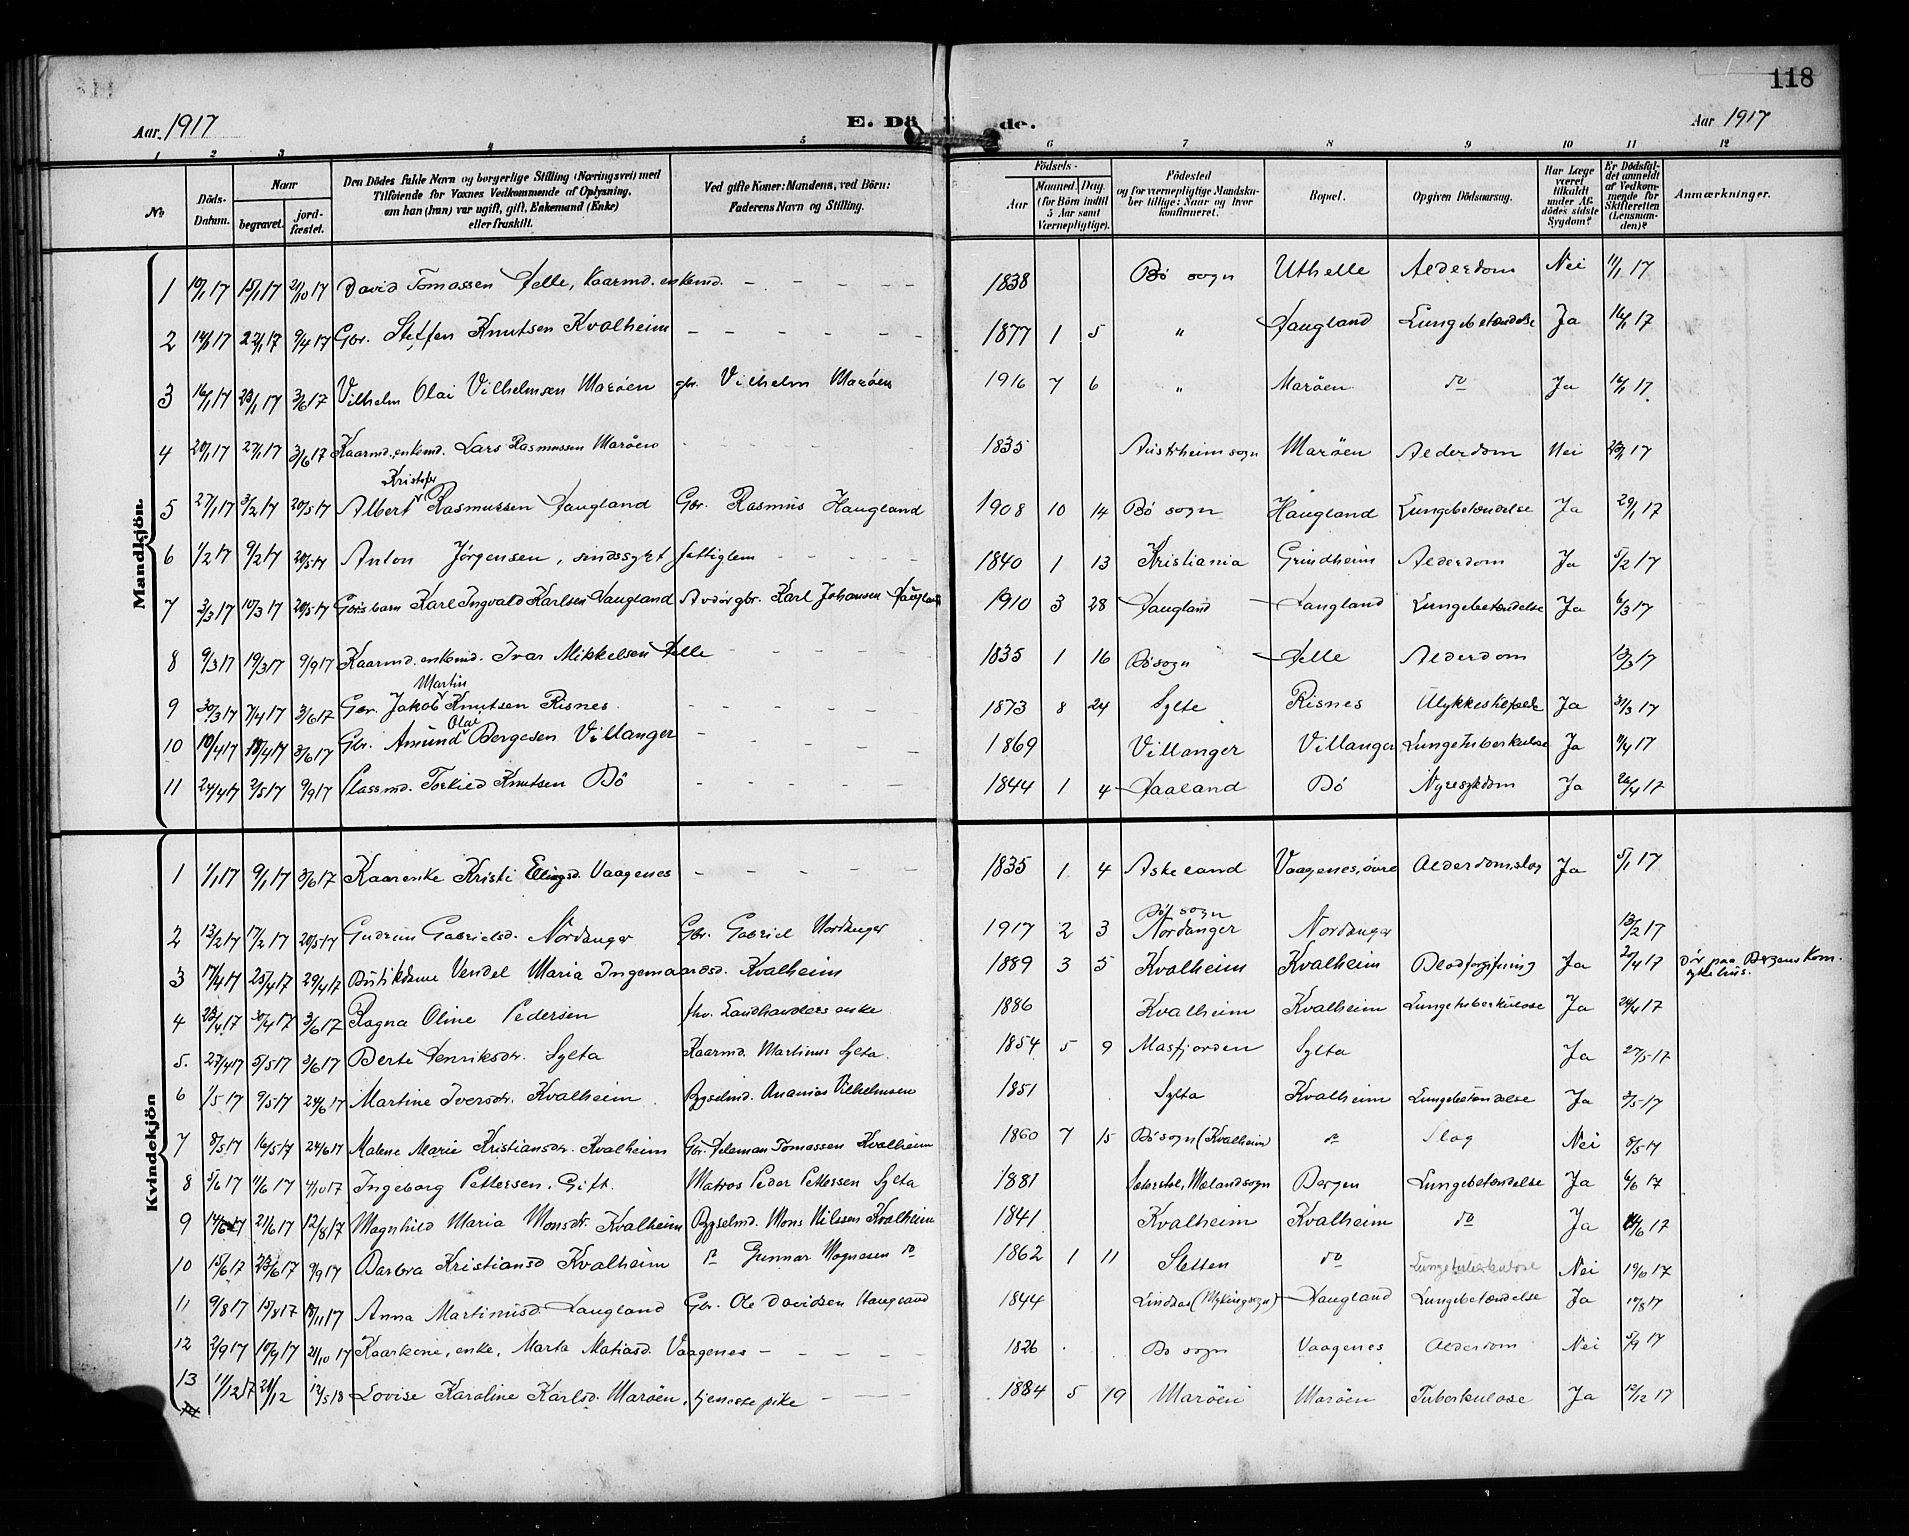 118
Aar 1917 E. Dö de. Aar 1917
1 2 3 4 5 6 7 8 9 10 11 12
No
Döds-Datum.
Naar
begravet.
jord-fæstet.
Den Dödes fulde Navn og borgerlige Stilling (Næringsvei) med Tilföiende for Voxnes Vedkommende af Oplysning, om han (hun) var ugift, gift, Enkemand (Enke) eller fraskilt.
Ved gifte Koner: Mandens, ved Börn: Faderens Navn og Stilling.
Födsels-
Aar
Maaned. Dag.
(for Börn indtil 5 Aar samt Værnepligtige).
Födested og for værnepligtige Mandskaber tillige: Naar og hvor konfirmeret.
Bopæl.
Opgiven Dödsaarsag.
Har Læge været tilkaldt under Afdödes sidste Sygdom?
Er Dödsfaldet anmeldt af Vedkommende for Skifteretten (Lensmanden)?
Anmærkninger.
Mandkjön.
1 10/1 17 15/1 17 21/10 17 David Tomassen Helle, Kaarmd. enkemd. – – – – – 1838 Bö sogn Uthelle Alderdom Nei 11/1 17
2 14/1 17 22/1 17 9/4 17 Gbr. Steffen Knutsen Kvalheim – – – – – – 1877 1 5 " Haugland Lungebetændelse Ja 16/1 17
3 16/1 17 23/1 17 3/6 17 Vilhelm Olai Vilhelmsen Maröen gbr. Vilhelm Maröen 1916 7 6 " Maröen do Ja 16/1 17
4 20/1 17 27/1 17 3/6 17 Kaarmd. enkemd. Lars Rasmussen Maröen – – – – – – 1835 Austrheim sogn Maröen Alderdom Nei 23/1 17
Kristofer
5 27/1 17 3/2 17 20/5 17 Albert Rasmussen Haugland Gbr. Rasmus Haugland 1908 10 14 Bö sogn Haugland Lungebetændelse Ja 29/1 17
6 1/2 17 9/2 17 20/5 17 Anton Jørgensen, sindssykt fattiglem – – – – 1840 1 13 Kristiania Grindheim Alderdom Ja 5/2 17
7 3/3 17 10/3 17 20/5 17 Karl Ingvald Karlsen Haugland gbr. Karl Johansen Haugland 1910 3 28 Haugland Haugland Lungebetændelse Ja 6/3 17
8 9/3 17 19/3 17 9/9 17 Kaarmd. enkemd. Ivar Mikkelsen Helle – – – – 1835 1 16 Bö sogn Helle Alderdom 13/3 17
Martin
9 30/3 17 7/4 17 3/6 17 Gbr. Jakob Knutsen Risnes – – – – – – 1873 8 24 Sylte Risnes Ulykkestilfælde Ja 31/3 17
Olai
10 10/4 17 18/4 17 3/6 17 Gbr. Amund Bergesen Villanger – – – – – 1869 Villanger Villanger Lungetuberkulose Ja 11/4 17
11 24/4 17 2/5 17 9/9 17 Plassmd. Torkild Knutsen Bö – – – – – – 1844 1 4 Haaland Bö Nyresykdom Ja 26/4 17
Kvindekjön
1 1/1 17 9/1 17 3/6 17 Kaarenke Kristi Ellingsd. Vaagenes – – – – – – 1835 1 4 Askeland Vaagenes, övre Alderdom, slag Ja 5/1 17
Bö sogn
2 13/2 17 17/2 17 20/5 17 Gudrun Gabrielsd. Nordanger Gbr. Gabriel Nordanger 1917 2 3 Nordanger Nordanger 13/2 17
3 17/4 17 25/4 17 29/4 17 Butikdame Vendel Maria Ingemaardsd. Kvalheim 1889 3 5 Kvalheim Kvalheim Blodforgiftning Ja 20/4 17 Dör paa Bergens Kom. sykehus.
4 23/4 17 30/4 17 3/6 17 Ragna Oline Pedersen fhv. Landhandlers enke 1886 Kvalheim Kvalheim Lungetuberkulose Ja 24/4 17
5. 27/4 17 5/5 17 3/6 17 Berte Henriksdr. Sylta Kaarmd. Martinus Sylta 1854 5 9 Masfjorden Sylta Ja 27/5 17
6 1/5 17 9/5 17 24/6 17 Martine Iversdr. Kvalheim Bygselmd. Ananias Vilhelmsen 1851 Sylta Kvalheim Lungebetændelse Ja 3/5 17
7 8/5 17 16/5 17 24/6 17 Malene Marie Kristiansdr. Kvalheim Gbr. Teleman Tomassen Kvalheim 1860 7 15 Bö sogn (Kvalheim) do Slag Nei 8/5 17
8 5/6 17 11/6 17 4/10 17 Ingeborg Pettersen, Gift. Matros Peder Pettersen Sylta 1881 Mælandsogn Bergen Lungebetændelse Ja 6/6 17
9 14/6 17 21/6 17 12/8 17 Magnhild Maria Monsdr. Kvalheim Bygselmd. Mons Nilssen Kvalheim 1841 Kvalheim Kvalheim do Ja 14/6 17
10 15/6 17 23/6 17 9/9 17 Barbra Kristiansd Kvalheim do Gunnar Magnesen do 1862 1 11 Sletten do Lungetuberkulose Nei 19/6 17
11 9/8 17 15/8 17 18/11 17 Anna Martinusd. Haugland Gbr. Ole Davidsen Haugland 1844 Lindaas (Mykingsogn) Haugland Lungebetændelse Ja 10/8 17
12 2/9 17 10/9 17 21/10 17 Kaarkone, enke, Marta Matiasd. Vaagenes – – – – – 1826 Bö sogn Vaagenes Alderdom Nei 5/9 17
13 11/12 17 21/12 12/5 18 Lovise Karoline Karlsd. Maröen, tjenestepike – – – 1884 5 19 Maröen Maröen Tuberkulose Ja 12/12 17